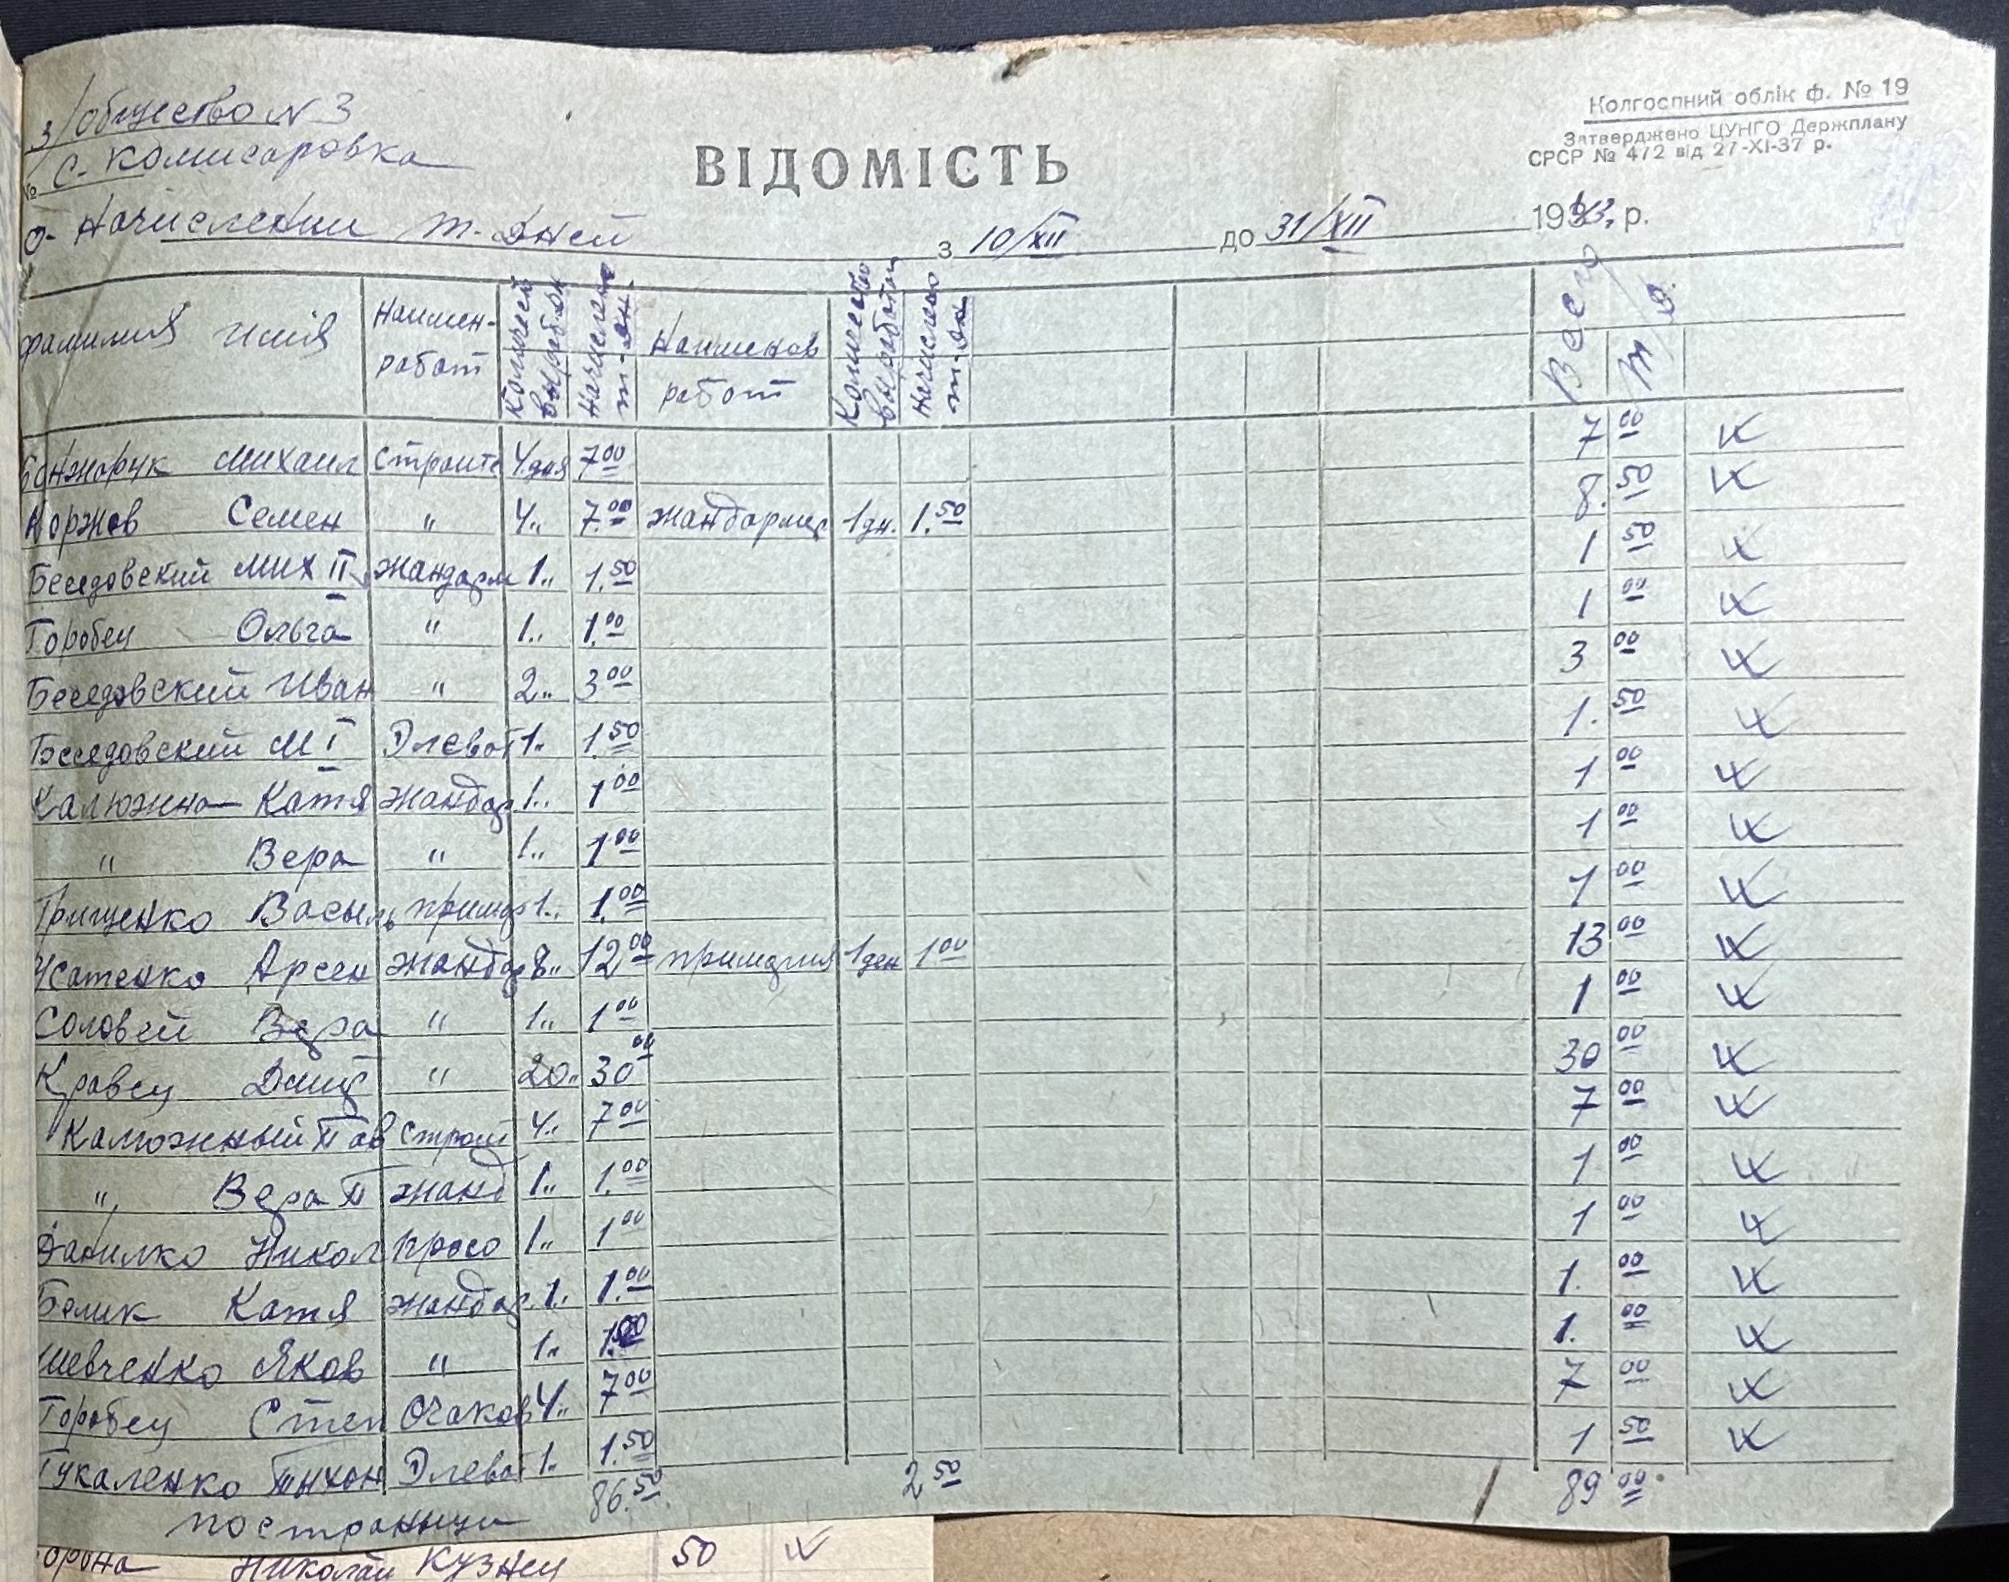 Колгоспний облік ф. № 19
Затверджено ЦУНГО Держплану
СРСР № 472 від 27-XI-37 р.
з/общество N 3
№ с. Комисаровка
ВІДОМІСТЬ
о- Начислении т. дней з 10/XII до 31/XII 1943. р.
фамилия имя Наимен- работ Количест выработ Начислено т-дн. Наименов работ Количество выработан Начислено т-дн Всего т д.
Михаил строите 4 дня 7.00 7 00
Коржов Семен " 4" 7.00 жандармер 1 дн. 1.50 8. 50
Беседовский Мих II жандарм 1" 1.50 1 50
Горобец Ольга " 1" 1.00 1 00
Беседовский Иван " 2" 3 00 3 00
Беседовский М I Длеват 1" 1.50 1. 50
Калюжна Катя жандар 1" 1 00 1 00
" Вера " 1" 1 00 1 00
Грищенко Василь 1" 1.00 1 00
Усатенко Арсен жандар 8" 12 00 1 ден 1 00 13 00
Соловей Вера " 1" 1 00 1 00
Кравец " 20" 30 00 30 00
Калюжный Пав строит 4" 7 00 7 00
" Вера II жанд 1" 1.00 1 00
Данилко Никол просо 1" 1 00 1 00
Белик Катя жандар. 1" 1.00 1. 00
Шевченко Яков " 1" 1.00 1. 00
Горобец Степ Очаков 4" 7 00 7 00
Тукаленко Тыхон Длеват 1" 1.50 1 50
по странице 86.50 2 50 89 00
орона Николай Кузнец 50